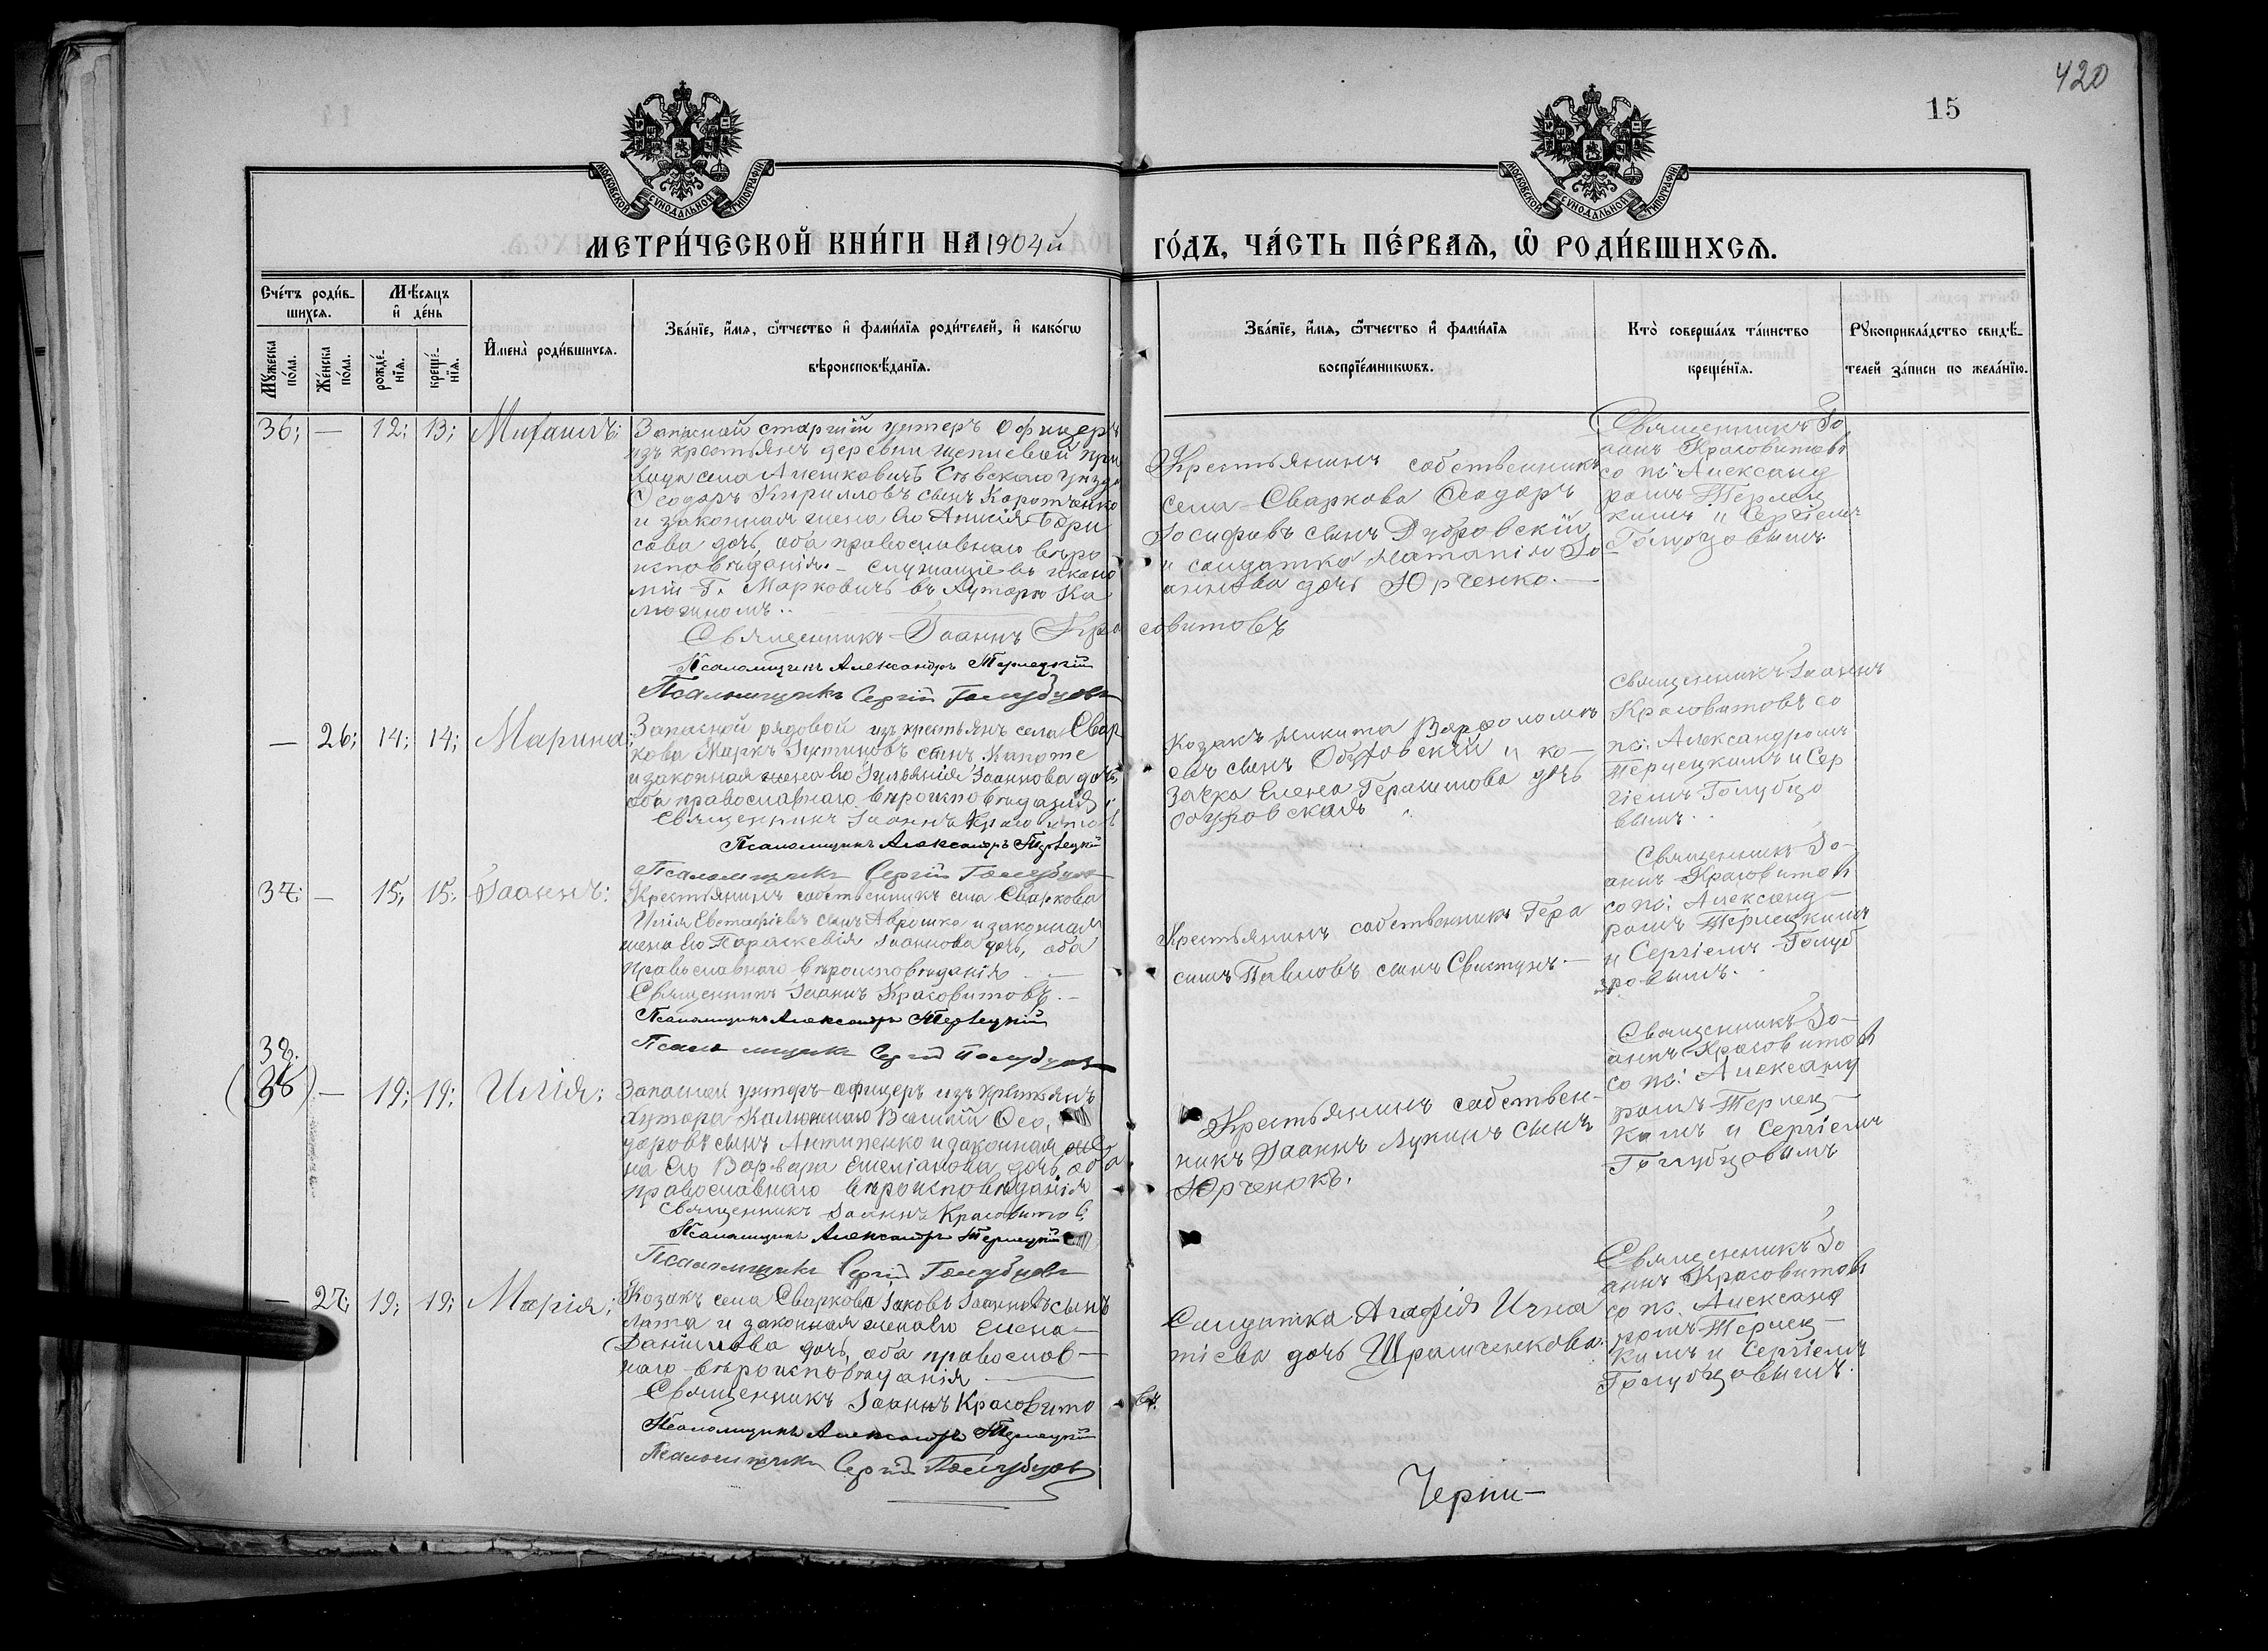 420
15
МОСКОВСКОЙ СУНОДАЛЬНОЙ ТИПОГРАФІИ
МОСКОВСКОЙ СУНОДАЛЬНОЙ ТИПОГРАФІИ
МЕТРИ́ЧЕСКОЙ КНИ́ГИ НА 1904 й
ГО́ДЪ, ЧА́СТЬ ПЕ́РВАѦ, Ѿ РОДИ́ВШИХСѦ.
Сче́тъ роди́в-
шихсѧ.
Мꙋ́жеска по́ла.
Же́нска по́ла.
Мѣ́сѧцъ
и҆ де́нь
рожде́-нїѧ.
креще́-нїѧ.
И҆мена̀ роди́вшихсѧ.
Зва́нїе, и҆́мѧ, ѻ҆́тчество и҆ фами́лїѧ роди́телей, и҆ како́гѡ
вѣроисповѣ́данїѧ.
Зва́нїе, и҆́мѧ, ѻ҆́тчество и҆ фами́лїѧ
воспрїе́мникѡвъ.
Кто̀ соверша́лъ та́инство
креще́нїѧ.
Рꙋкоприкла́дство свидѣ́-
телей за́писи по жела́нїю.
36; — 12; 13; Михаилъ:
Запасной старшій унтеръ офицеръ
изъ крестьянъ деревни Щепневой при
хода села Алешковичъ Сѣвскаго уѣзда
Ѳеодоръ Кирилловъ сынъ Коротченко
и законная жена его Анисія Бори
сова дочь, оба православнаго вѣро
исповѣданія. – служащіе въ экано
міи Г. Марковичъ въ хуторѣ Ка
люжномъ..
Священникъ Іоаннъ Красовитовъ
Псаломщикъ Александръ Терлецкій
Псаломщикъ Сергій Голубцовъ
Крестьянинъ собственникъ
села Сваркова Ѳеодоръ
Іосифовъ сынъ Дубровскій
и солдатка Наталія Іо
аннова дочь Юрченко. —
Священникъ Іо
аннъ Красовитовъ
со пс: Александ
ромъ Терлец
кимъ и Сергіемъ
Голубцовымъ
— 26; 14; 14; Марина:
Запасной рядовой изъ крестьянъ села Свар
кова Маркъ Іустиновъ сынъ Капоте
и законная жена его Іуліанія Іоаннова дочь,
оба православнаго вѣроисповѣданія:
Священникъ Іоаннъ Красовитовъ
Псаломщикъ Александръ Терлецкій
Псаломщикъ Сергій Голубцовъ
Козакъ Никита Варѳоломе
евъ сынъ и ко-
зачка Елена Герасимова дочь
Священникъ Іоаннъ
Красовитовъ со
пс: Александромъ
Терлецкимъ и Сер
гіемъ Голубцо
вымъ..
37: — 15; 15; Іоаннъ:
Крестьянинъ собственникъ села Сваркова
Илія Евстафіевъ сынъ Аврошко и законная
жена его Параскевія Іоаннова дочь, оба
православнаго вѣроисповѣданія —
Священникъ Іоаннъ Красовитовъ. –
Псаломщикъ Александръ Терлецкій
Псаломщикъ Сергій Голубцовъ
Крестьянинъ собственникъ Гера
симъ Павловъ сынъ Свистунъ. —
Священникъ Іо-
аннъ Красовитовъ
со пс: Александ-
ромъ Терлецкимъ
и Сергіемъ Голуб
цовымъ.
38.
(38) — 19; 19; Илія:
Запасной унтеръ-офицеръ изъ крестьянъ
хутора Калюжнаго Василій Ѳео,
доровъ сынъ Антипенко и законная же
на его Варвара Емеліанова дочь, оба
православнаго вѣроисповѣданія
Священникъ Іоаннъ Красовитовъ
Псаломщикъ Александръ Терлецкій
Псаломщикъ Сергій Голубцовъ
Крестьянинъ собствен-
никъ Іоаннъ Лукинъ сынъ
Юрченокъ.
Священникъ Іо-
аннъ Красовитовъ
со пс: Александ
ромъ Терлец-
кимъ и Сергіемъ
Голубцовымъ
— 27; 19; 19; Марія;
Козакъ села Сваркова Іаковъ Іоанновъ сынъ
Лата и законная жена его Елена
Даніилова дочь, оба православ-
наго вѣроисповѣданія —
Священникъ Іоаннъ Красовитовъ.
Псаломщикъ Александръ Терлецкій
Псаломщикъ Сергій Голубцовъ
Солдатка Агафія Игна
тіева дочь Щрамченкова.
Священникъ Іо
аннъ Красовитовъ
со пс. Александ
ромъ Терлец-
кимъ и Сергіемъ
Голубцовымъ.
Черни—